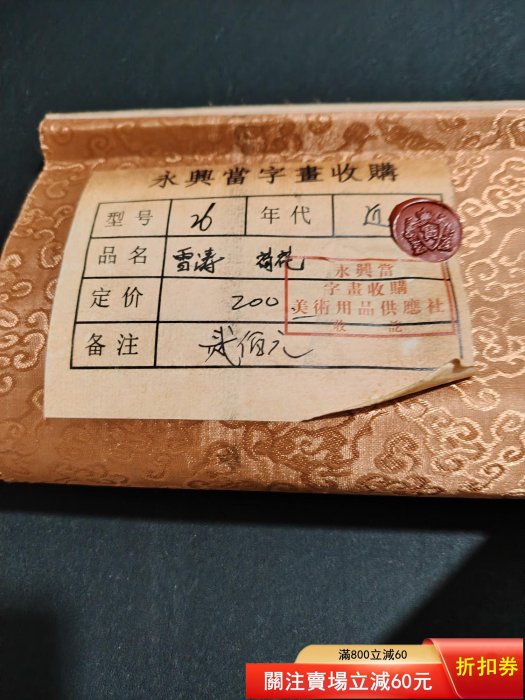 永興當字畫收購
型号 26 年代 近
品名 雪涛 荷花
定价 200
备注 贰佰元
永興當
字畫收購
美術用品供應社
收 記
滿800立減60
關注賣場立減60元
折扣券